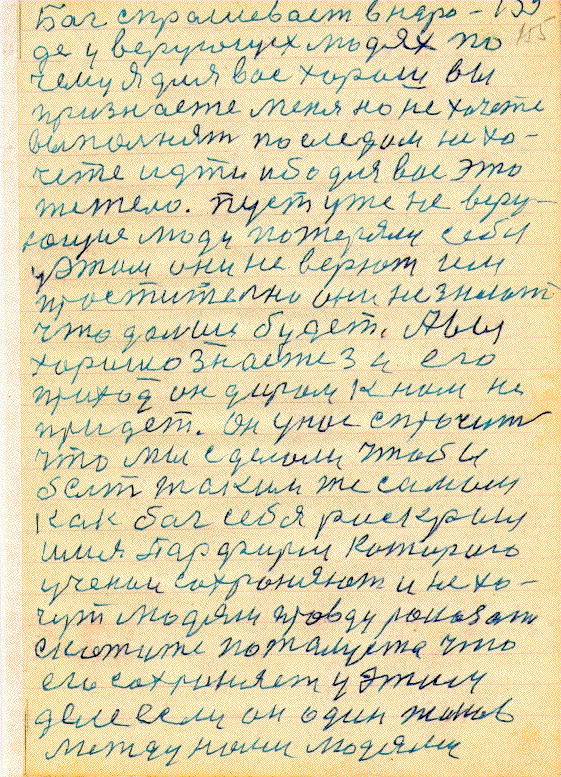 Бог спрашевает в наро- 155
155
де у верующех людях по
чему я для вас хорош вы
признаете меня но не хочете
выполнят последам не хо-
чете идти ибо для вас это
тежело. Пуст уже не веру-
ющие люди потеряли себя
у этом они не верют им
простително они не знают
что дальше будет. А вы
хорошо знаете за его
приход он даром к нам не
придет. Он у нас спросит
что мы сделали чтобы
быт таким же самым
как бог себя раскрыл
имя Парфирий которого
учении сохроняют и не хо-
чут людям правду показат
скажите пожалуста что
его сохроняет у этим
деле если он один такой
между нами людями